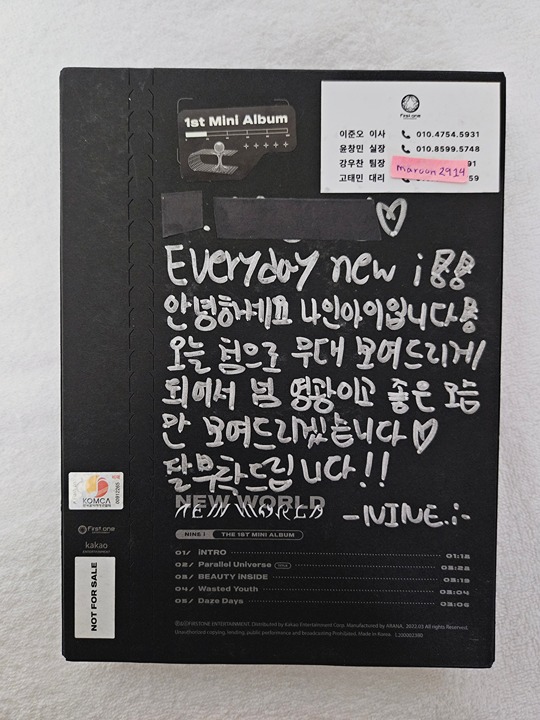 1st Mini Album
First.one
이준오 이사 010.4754.5931
윤창민 실장 010.8599.5748
강우찬 팀장 91
고태민 대리 59
maroon2914
Everyday new i
안녕하세요 나인아이입니다
오늘 첨으로 무대 보여드리게
되어서 넘 영광이고 좋은 모습
만 보여드리겠습니다♡
잘부탁드립니다!!
-NINE.i-
NEW WORLD
NEW WORLD
KOMCA
First.one
kakao
ENTERTAINMENT
NOT FOR SALE
NINE i THE 1ST MINI ALBUM
01/ iNTRO 01:12
02/ Parallel Universe 03:22
03/ BEAUTY iNSiDE 03:19
04/ Wasted Youth 03:04
05/ Daze Days 03:06
FIRSTONE ENTERTAINMENT. Distributed by Kakao Entertainment Corp. Manufactured by ARANA. 2022.03 All rights Reserved.
Unauthorized copying, lending, public performance and broadcasting Prohibited. Made in Korea. L200002390